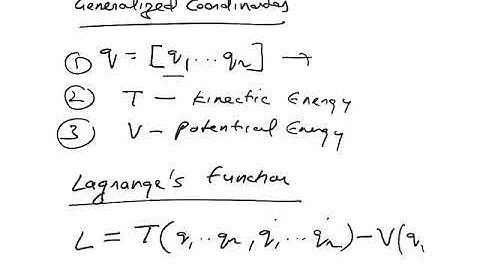 Generalized Coordinates
① q = [q₁, ... qₙ] →
② T - Kinectic Energy
③ V - Potential Energy
Lagrange's Function
L = T(q₁ .. qₙ, q̇₁ ... q̇ₙ) - V(q₁